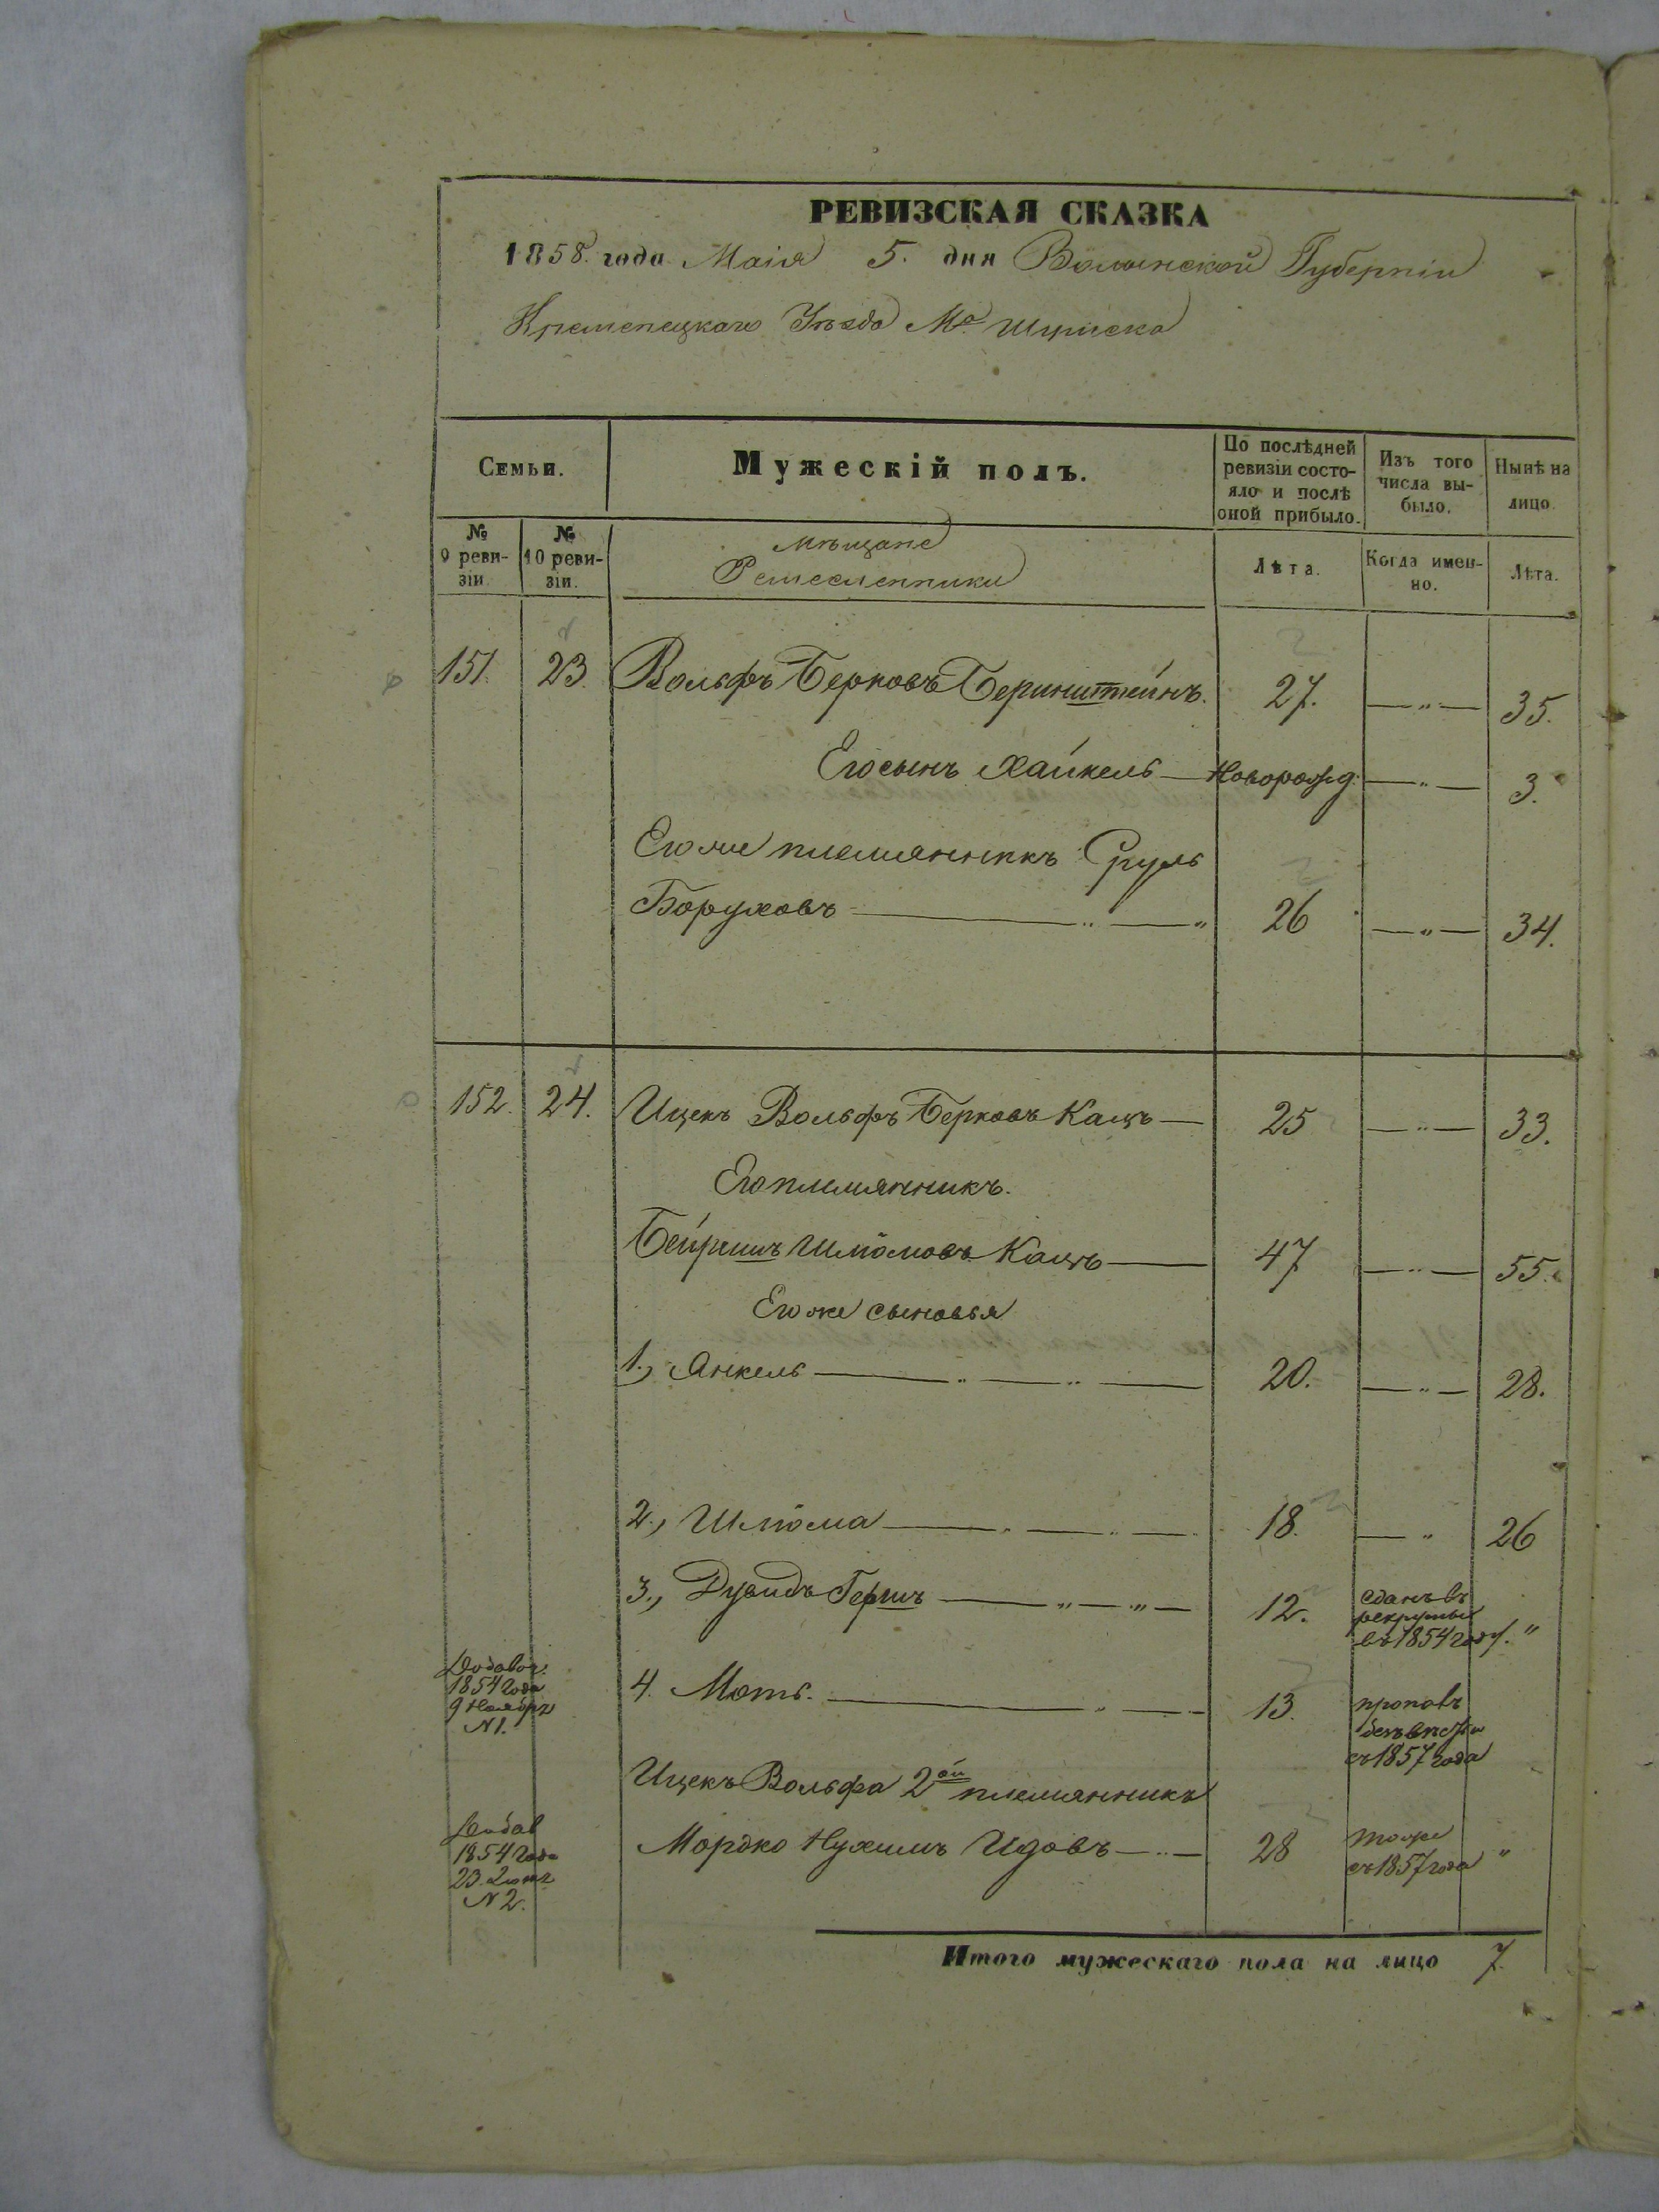 РЕВИЗСКАЯ СКАЗКА
1858. года Маія 5. дня Волынской Губерніи
Кременецкаго Уѣзда Мᵃ Шумска
Семьи.
Мужескій полъ.
По послѣдней ревизіи состо-
яло и послѣ
оной прибыло.
Изъ того
числа вы-
было.
Нынѣ на
лицо.
№
9 реви-
зіи.
№
10 реви-
зіи.
Мѣщане
Ремесленники
Лѣта.
Когда имен-
но.
Лѣта.
151. 23. Вольфъ Берковъ Беринштейнъ. 27. —"— 35.
Его сынъ Хайкель — Новорожд. —"— 3.
Его же племянникъ Сруль
Боруховъ — " — " 26 —"— 34.
152. 24. Ицекъ Вольфъ Берковъ Кацъ — 25 —"— 33.
Его племянникъ.
Бейришъ Шлiомовъ Кацъ — 47 —"— 55.
Его же сыновья
1., Янкель — " — " — 20. —"— 28.
2., Шлiома — " — " — 18. — " 26
3., Дувидъ Гершъ — " — " — 12. сданъ въ
рекруты
въ 1854 году. "
Добавоч.
1854 года
9 Ноября
N 1.
4. Моть. — " — 13. пропавъ
безъ вѣсти
съ 1857 года
Ицекъ Вольфа 2ой племянникъ
Добав
1854 года
23.
N 2.
Мордко Нухимъ Идовъ — " — 28 тоже
съ 1857 года "
Итого мужескаго пола на лицо 7.